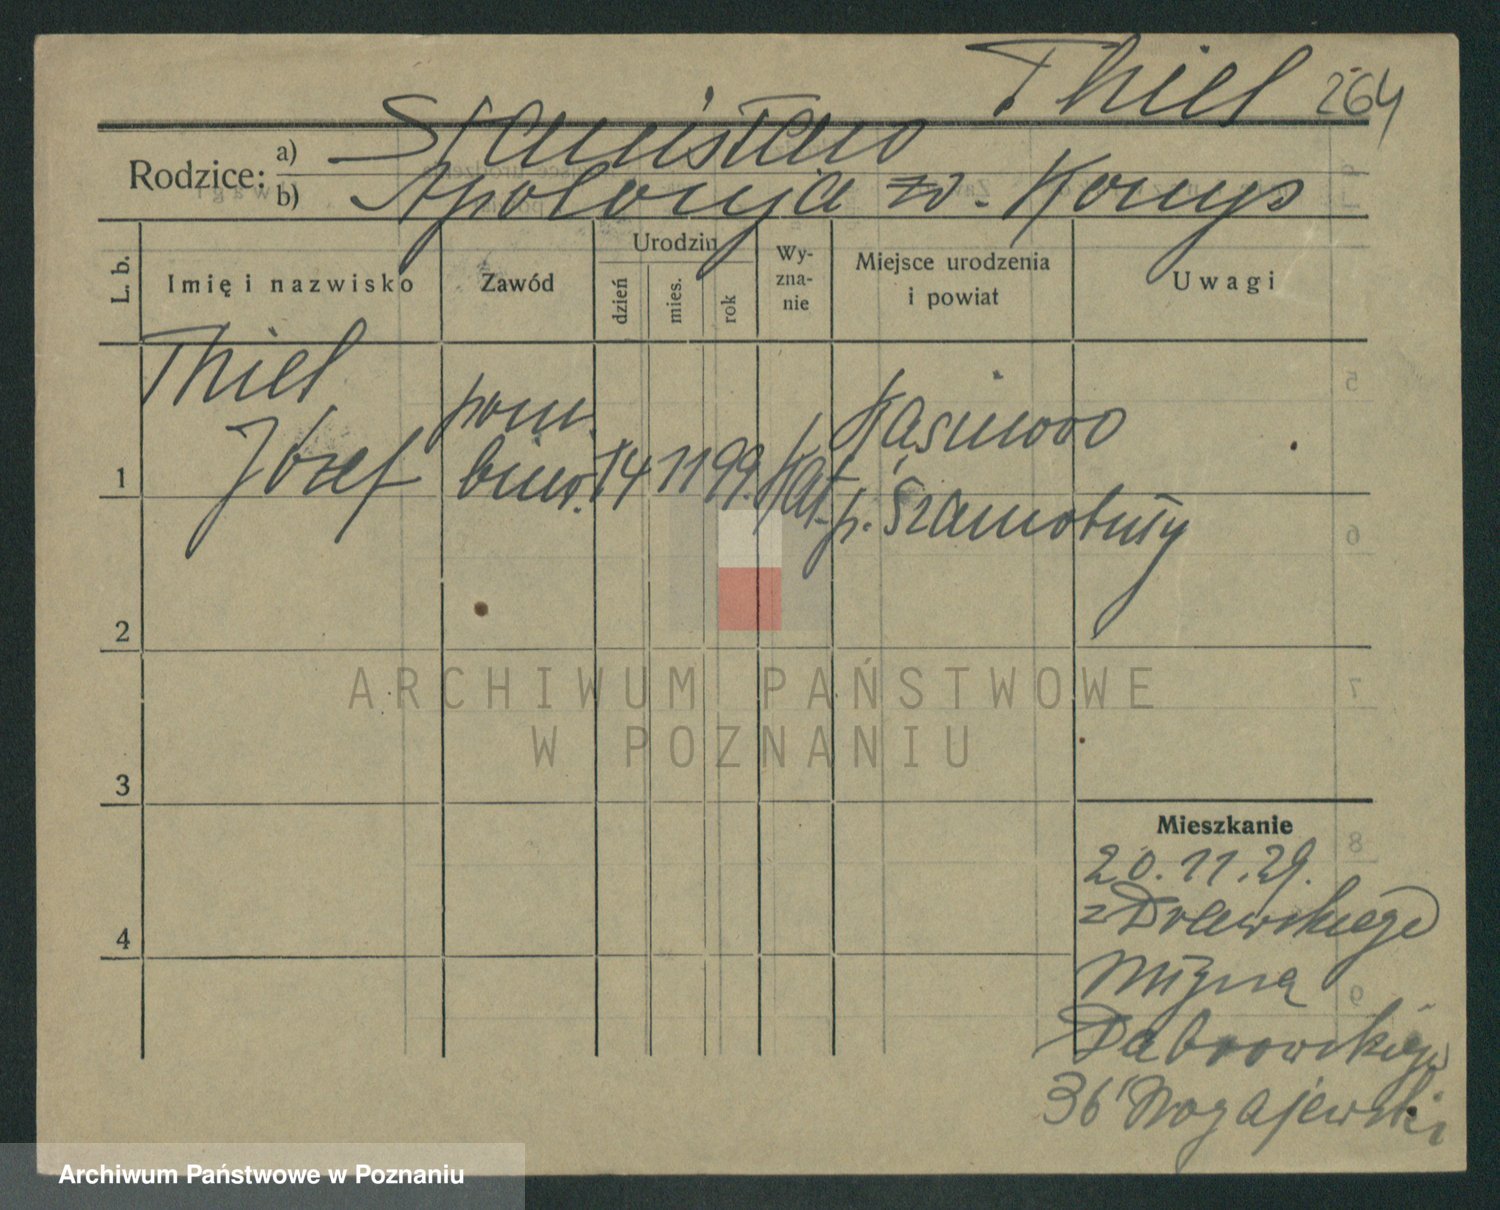 Thiel 264
Rodzice: a) Stanisław
b) Apolonja zd. Konys
L. b.
Imię i nazwisko
Zawód
Urodzin
dzień
mies.
rok
Wy-
zna-
nie
Miejsce urodzenia
i powiat
Uwagi
Thiel
Józef
pom.
biur.
14 11 99. kat.
Kąsinowo
p. Szamotuły
1
2
3
4
Mieszkanie
20.11.29.
z Drawskiego
Młyna
Dąbrowskiego
36
ARCHIWUM PAŃSTWOWE
W POZNANIU
Archiwum Państwowe w Poznaniu